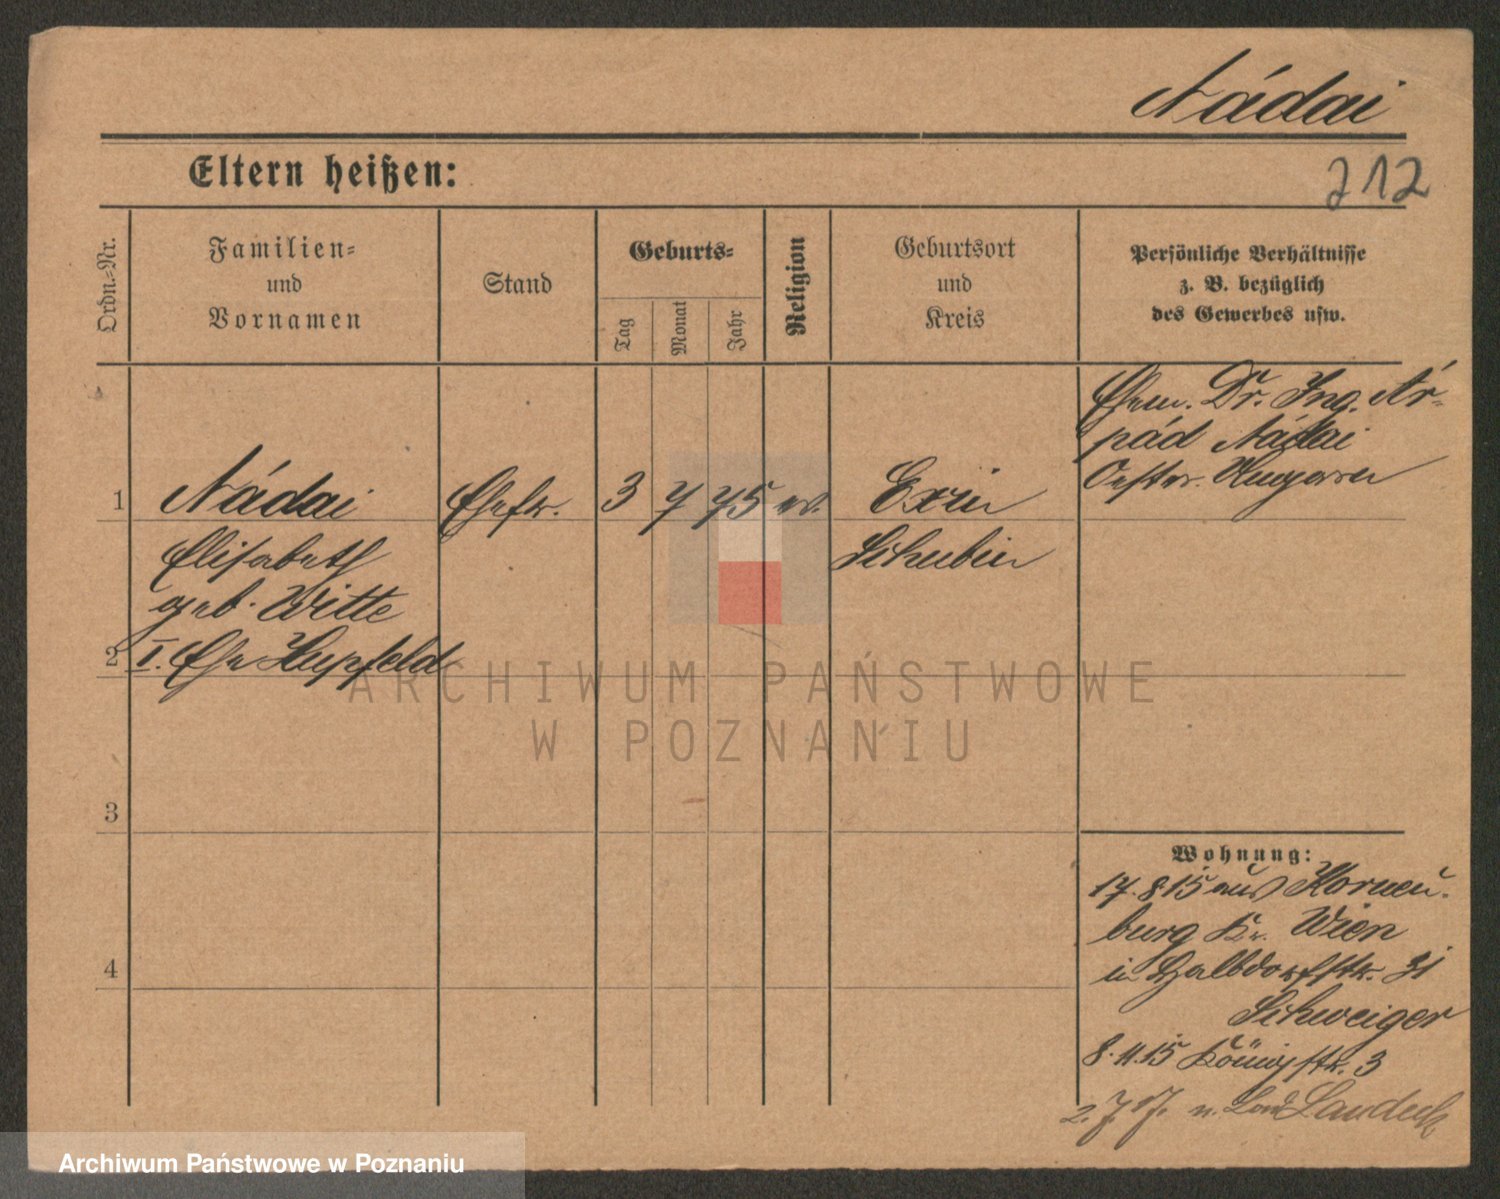 Nádai
Eltern heißen:
212
Ordn.-Nr.
Familien-
und
Vornamen
Stand
Geburts-
Tag
Monat
Jahr
Religion
Geburtsort
und
Kreis
Persönliche Verhältnisse
z. B. bezüglich
des Gewerbes usw.
Ehem. Dr. Ing. Ár-
pád Nádai
Oester. Ungarn
1 Nádai Ehefr. 3 7 75 ev. Exin
Elisabeth Schubin
geb. Witte
2 I. Ehe Hupfeld
3
4
Wohnung:
17.8.15 aus Korneu-
burg Kr. Wien
in Halbdorfstr. 31
Schweiger
8.11.15 Königstr. 3
2.7.17. n. Bad Landeck
ARCHIWUM PAŃSTWOWE
W POZNANIU
Archiwum Państwowe w Poznaniu